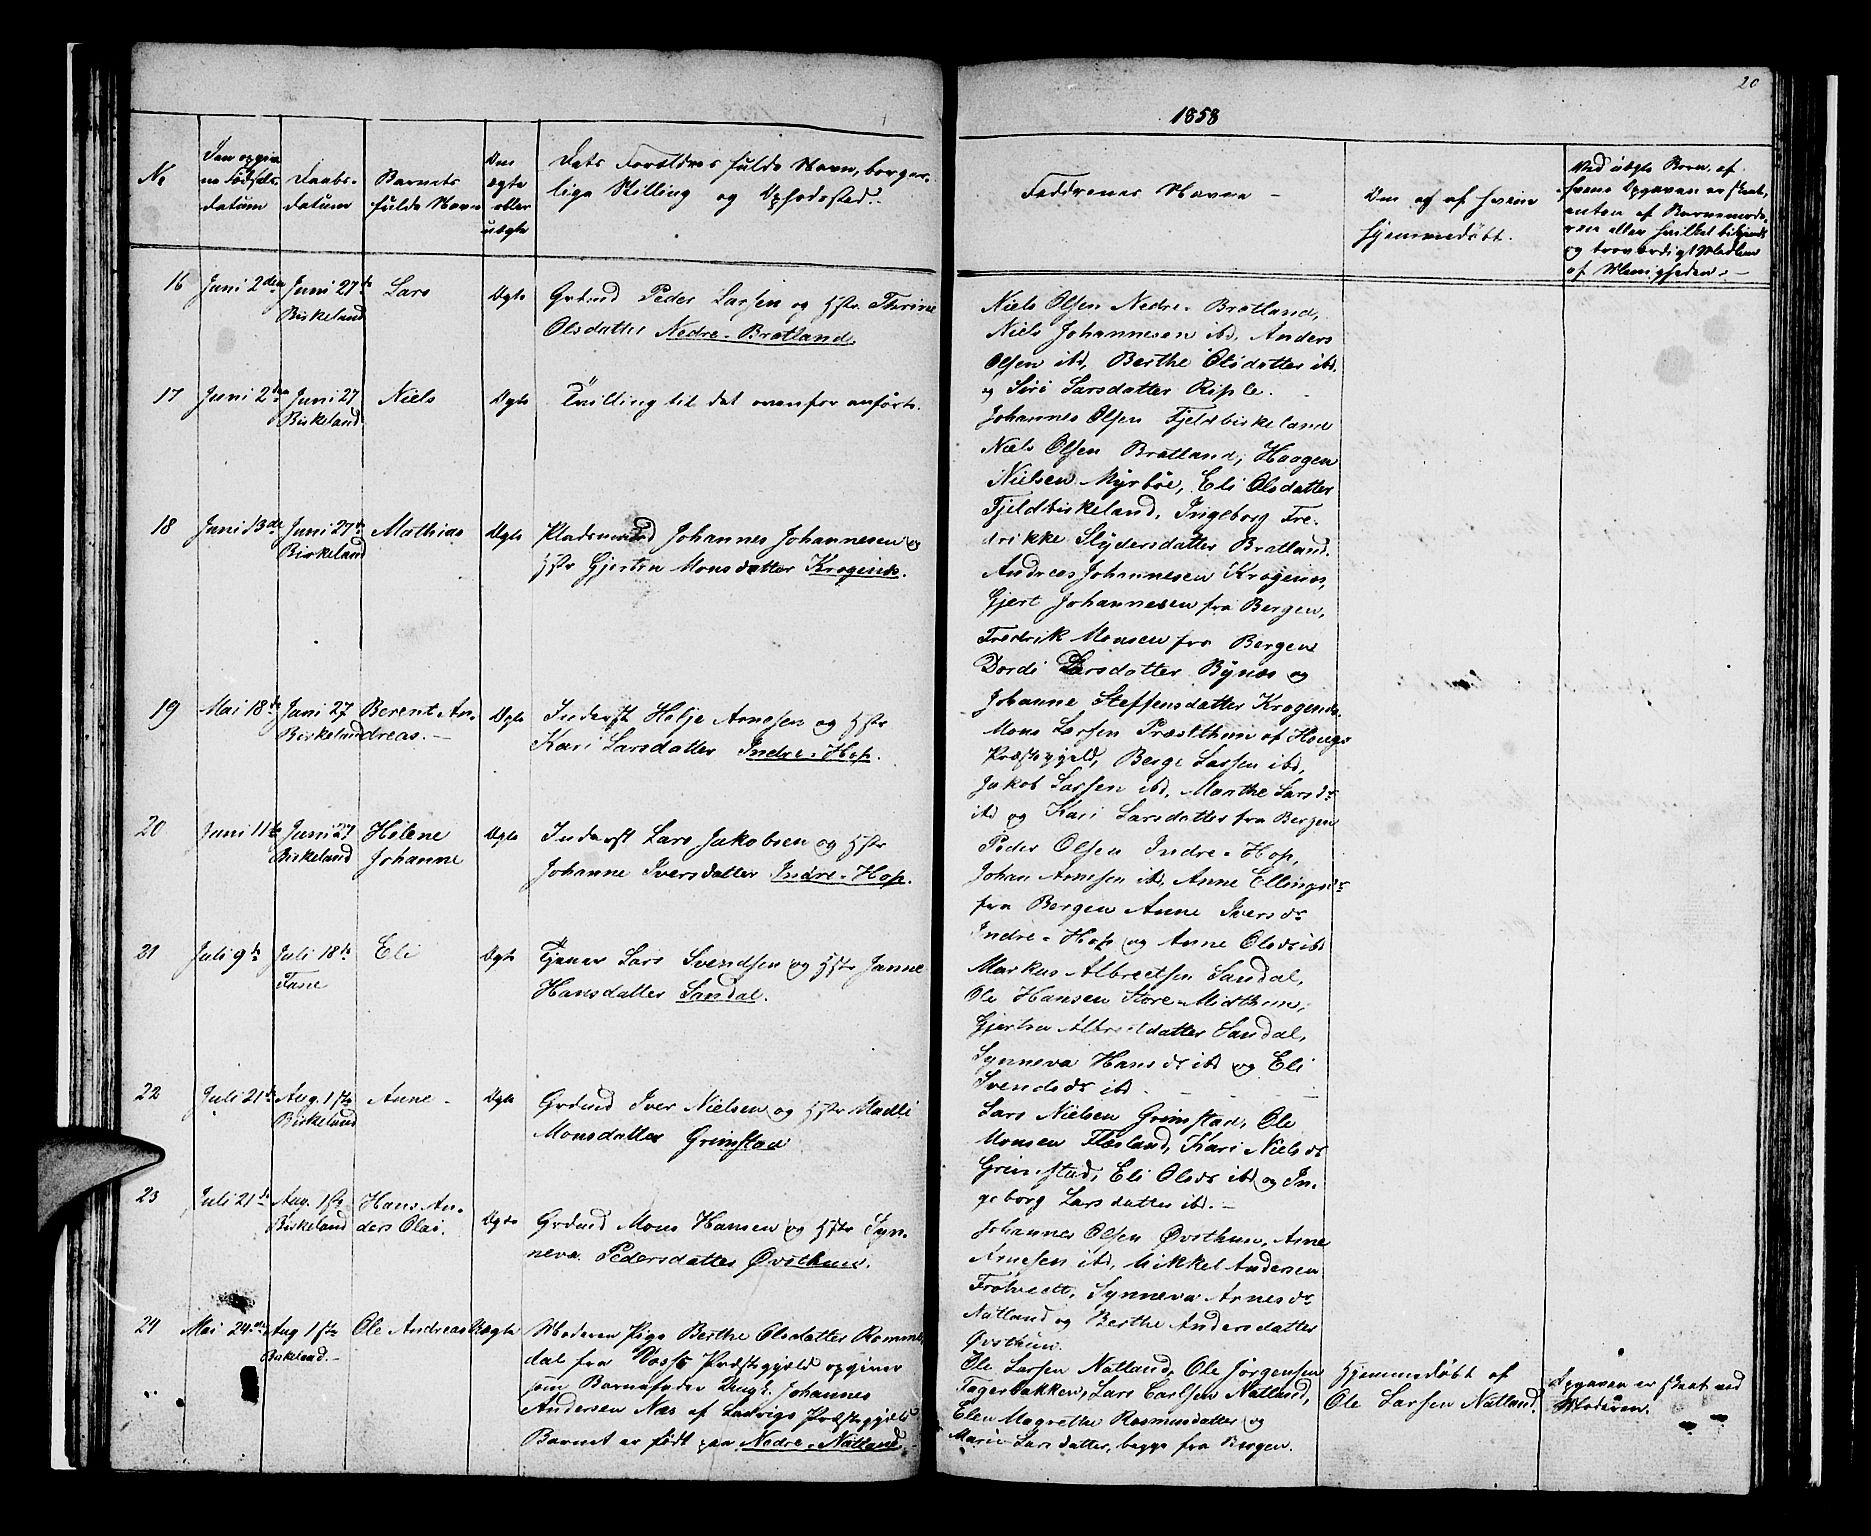 20
1858
No
Den opgiv
ne Fødsels
datum
Daabs-
datum
Barnets
fulde Navn
Om
ægte
eller
uægte
Dets Forældres fulde Navn, borger-
lige Stilling og Opholdssted.
Faddrenes Navne -
Om og af hvem
hjemmedøbt.
Ved uægte Børn, af
hvem Opgaven er skeet,
enten af Barnemode-
ren eller hvilket bekjendt
og troværdigt Medlem
af Menigheden. -
16 Juni 2den Juni 27de Lars Ægte Grdmd Peder Larsen og Hstr Thrine
Birkeland Olsdatter Nedre-Bratland.
Niels Olsen Nedre-Bratland,
Niels Johannesen ibd, Anders
Olsen ibd, Berthe Olsdatter ibd
og Siri Larsdatter Riple.
17 Juni 2den Juni 27 Niels Ægte Tvilling til det ovenfor anførte.
Birkeland
Johannes Olsen Fjeldbirkeland
Niels Olsen Bratland, Haagen
Nielsen Myrbøe, Eli Olsdatter
Fjeldbirkeland, Ingeborg Fre-
drikke Slydersdatter Bratland.
18 Juni 13de Juni 27de Mathias Ægte Pladsmand Johannes Johannesen og
Birkeland Hstr Gjertru Monsdatter Kragenæs.
Andreas Johannesen Kragenæs,
Gjert Johannesen fra Bergen,
Fredrik Monsen fra Bergen
Dordi Larsdatter Bynæs og
Johanne Steffensdatter Kragenæs.
19 Mai 18de Juni 27 Berent An- Ægte Inderst Helje Arnesen og Hstr
Birkeland dreas. - Kari Larsdatter Indre-Hop.
Mons Larsen Præstthun af Hougs
Præstegjeld, Berge Larsen ibd,
Jakob Larsen ibd, Marthe Larsdr
ibd og Kari Larsdatter fra Bergen
20 Juni 11te Juni 27 Helene Ægte Inderst Lars Jakobsen og Hstr
Birkeland Johanne Johanne Iversdatter Indre-Hop.
Peder Olsen Indre-Hop,
Johan Arnesen ibd, Anne Ellingsdr
fra Bergen Anne Iversdr
Indre-Hop og Anne Olsdr ibd
21 Juli 9de Juli 18de Eli Ægte Tjener Lars Svendsen og Hstr Janne
Fane Hansdatter Sandal.
Markus Albretsen Sandal,
Ole Hansen Store-Midthun,
Gjertru Albretdatter Sandal,
Synneva Hansdr ibd og Eli
Svendsdr ibd -
22 Juli 21de Aug. 1ste Anne - Ægte Grdmd Iver Nielsen og Hstr Madli
Birkeland Monsdatter Grimstad
Lars Nielsen Grimstad, Ole
Monsen Flæsland, Kari Nielsdr
Grimstad, Eli Olsdr ibd og In-
geborg Larsdatter ibd. -
23 Juli 21de Aug. 1ste Hans An- Ægte Grdmd Mons Hansen og Hstr Syn-
Birkeland ders Olai. neva Pedersdatter Øvsthun.
Johannes Olsen Øvsthun, Arne
Arnesen ibd, Mikkel Andersen
Frotveedt, Synneva Arnesdr
Natland og Berthe Andersdatter
Øvsthun.
24 Mai 24de Aug 1ste Ole Andreas Uægte Moderen Pige Berthe Olsdatter Romme
Birkeland. - dal fra Voss Præstegjæld opgiver
som Barnefader Ungk. Johannes
Andersen Næs af Ladvigs Præstegjæld
Barnet er født paa Nedre-Natland
Ole Larsen Natland, Ole Jørgensen
Fagerbakken, Lars Carlsen Natland,
Elen Magrethe Rasmusdatter og
Marie Larsdatter, begge fra Bergen.
Hjemmedøbt af
Ole Larsen Natland.
Opgaven er skeet ved
Moderen.